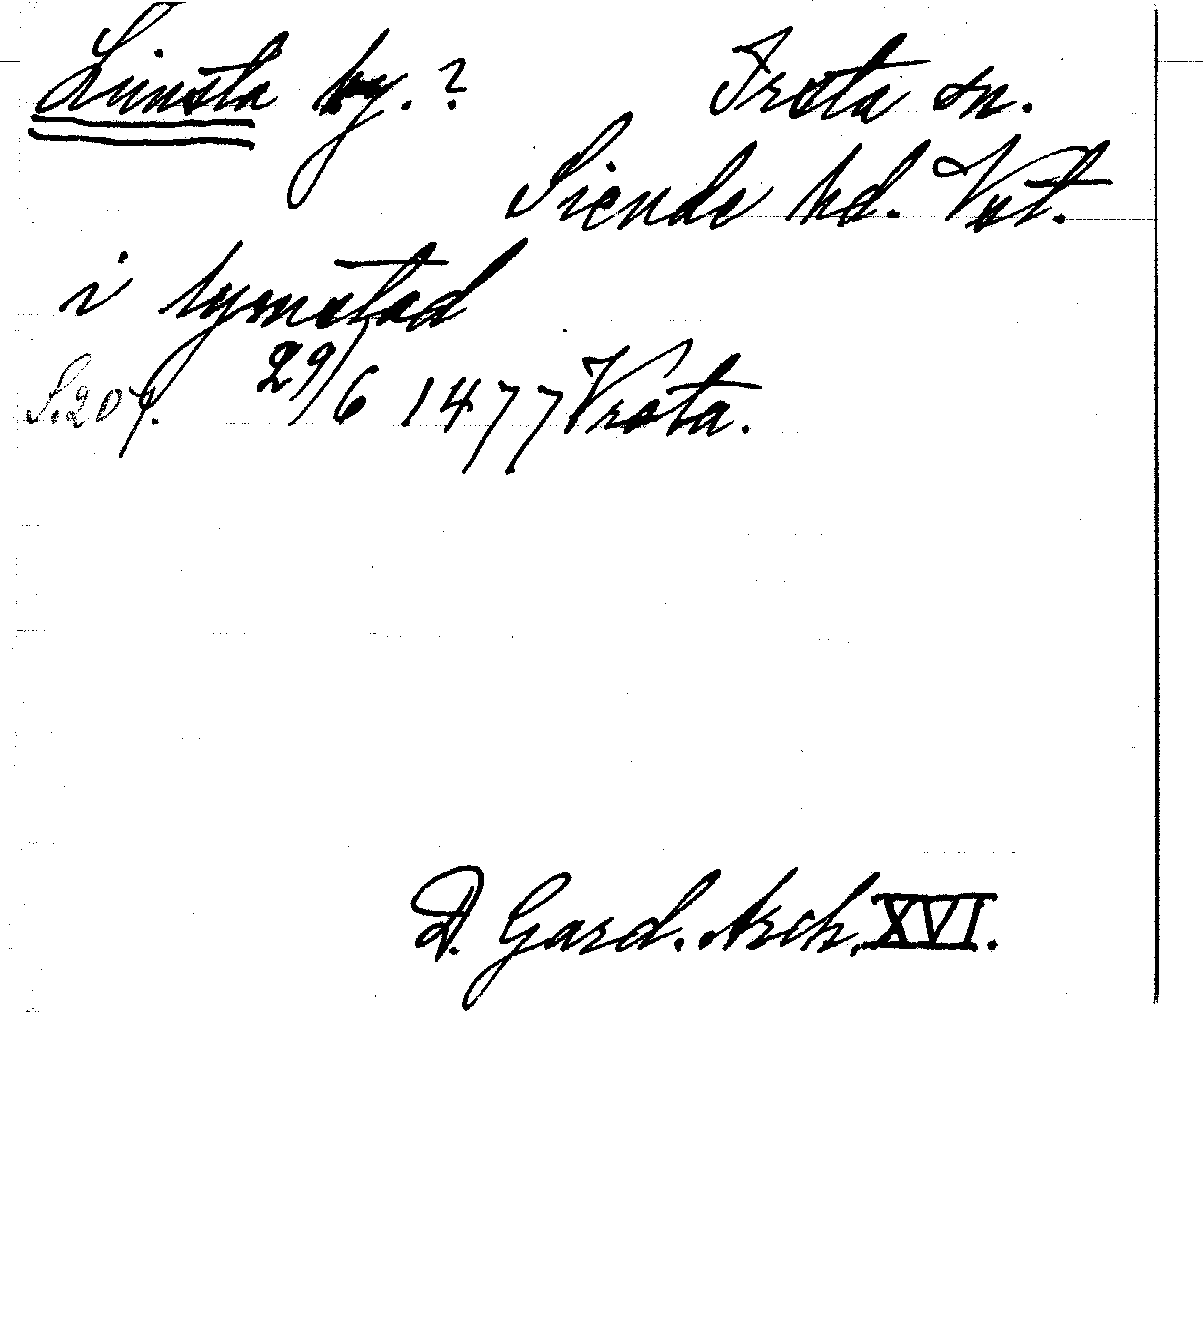 Limsta by.? Irsta sn.
Siende hd. Vst.
i lymstad
S.207. 29/6 1477 Yrsta.
D. Gard. Arch. XVI.